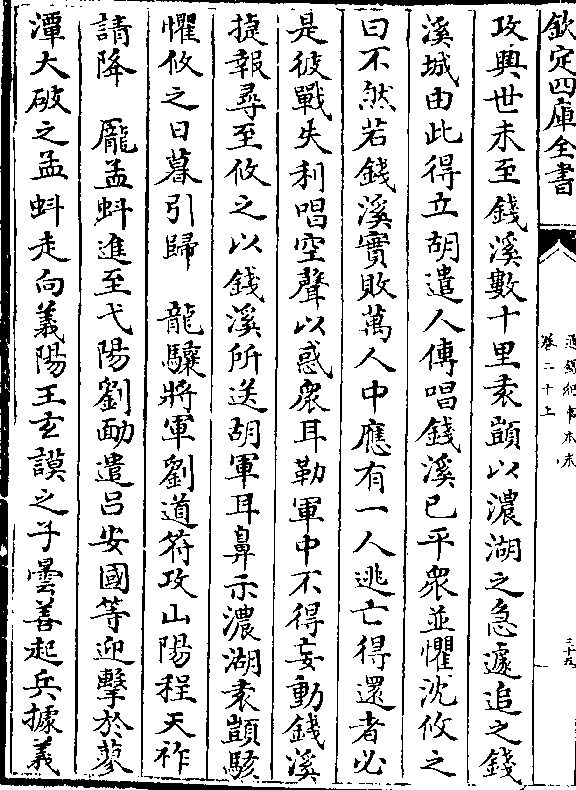 欽定四庫全書
通鑑紀事本末
卷二十上
三十九
攻興世未至錢溪數十里袁顗以濃湖之急遽追之錢
溪城由此得立胡遣人傳唱錢溪已平衆並懼沈攸之
曰不然若錢溪實敗萬人中應有一人逃亡得還者必
是彼戰失利唱空聲以惑衆耳勒軍中不得妄動錢溪
捷報尋至攸之以錢溪所送胡軍耳鼻示濃湖袁顗駭
懼攸之日暮引歸　龍驤將軍劉道符攻山陽程天祚
請降　龐孟蚪進至弋陽劉勔遣呂安國等迎擊於蓼
潭大破之孟蚪走向義陽王玄謨之子曇善起兵據義